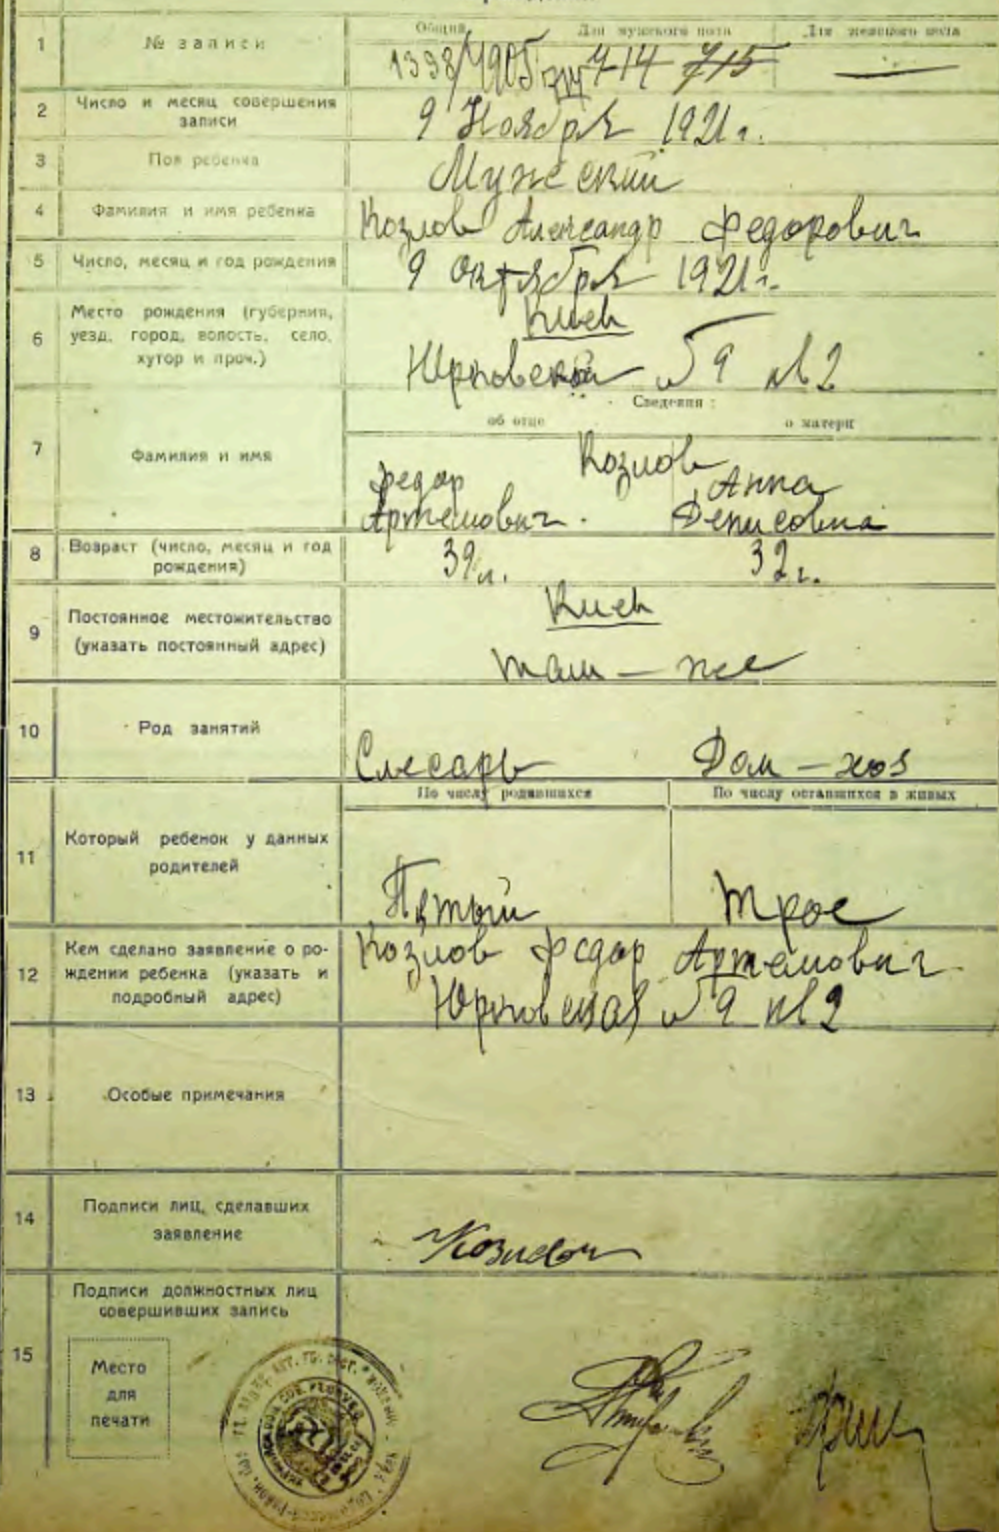 1
№ записи
Общий
Для мужского пола
Для женского пола
714 715
2
Число и месяц совершения
записи
9 Ноября 1921 г.
3
Пол ребенка
Мужский
4
Фамилия и имя ребенка
Козлов Александр Федорович
5
Число, месяц и год рождения
9 Октября 1921 г.
6
Место рождения (губерния,
уезд, город, волость, село,
хутор и проч.)
Киев
Юрковская 9 кв 2
Сведения:
об отце
о матери
7
Фамилия и имя
Козлов
Федор
Анна
Артемович.
Денисовна
8
Возраст (число, месяц и год
рождения)
39 л.
32 г.
9
Постоянное местожительство
(указать постоянный адрес)
Киев
там - же
10
Род занятий
Слесарь
Дом - хоз
По числу родившихся
По числу оставшихся в живых
11
Который ребенок у данных
родителей
Пятый
трое
12
Кем сделано заявление о ро-
ждении ребенка (указать и
подробный адрес)
Козлов Федор Артемович
Юрковская 9 кв 2
13
Особые примечания
14
Подписи лиц, сделавших
заявление
Козлов
15
Подписи должностных лиц
совершивших запись
Место
для
печати